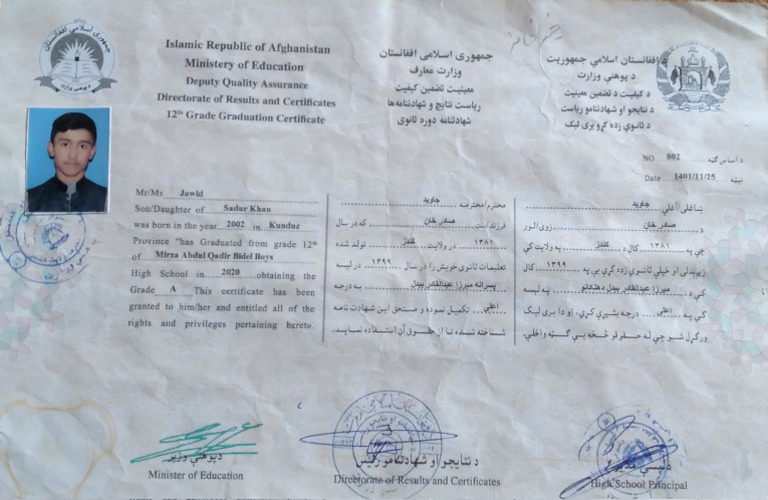 Islamic Republic of Afghanistan
Ministry of Education
Deputy Quality Assurance
Directorate of Results and Certificates
12th Grade Graduation Certificate
جمهوری اسلامی افغانستان
وزارت معارف
معینیت تضمین کیفیت
ریاست نتایج و شهادتنامه‌ها
شهادتنامه دوره ثانوی
افغانستان اسلامي جمهوریت
د پوهنې وزارت
د کیفیت د تضمین معینیت
د نتایجو او شهادتنامو ریاست
د ثانوي زده کړو بری لیک
NO 802 د اساس ګڼه
Date 1401/11/25 نیټه
Mr/Ms Jawid
Son/Daughter of Sadur Khan
was born in the year 2002 in Kunduz
Province "has Graduated from grade 12th
of Mirza Abdul Qadir Bidel Boys
High School in 2020 obtaining the
Grade A This certificate has been
granted to him/her and entitled all of the
rights and privileges pertaining hereto.
محترم/محترمه جاوید
فرزند/بنت صدر خان که در سال
۱۳۸۱ در ولایت کندز تولد شده
تعلیمات ثانوی خویش را در سال ۱۳۹۹ در لیسه
پسرانه میرزا عبدالقادر بیدل به درجه
اعلی تکمیل نموده و مستحق این شهادت نامه
شناخته شده تا از حقوق آن استفاده نماید.
ښاغلی/اغلې جاوید
د صدر خان زوی/لور
چې په ۱۳۸۱ کال د کندز په ولایت کې
زېږېدلی او خپلې ثانوي زده کړې یې په ۱۳۹۹ کال
کې د میرزا عبدالقادر بیدل د هلکانو په لیسه
کې په اعلی درجه بشپړې کړې، او دا بری لیک
ورکړل شو چې له حقوقو څخه یې ګټه واخلي.
د پوهنې وزیر
Minister of Education
د نتایجو او شهادتنامو رئیس
Directorate of Results and Certificates
High School Principal